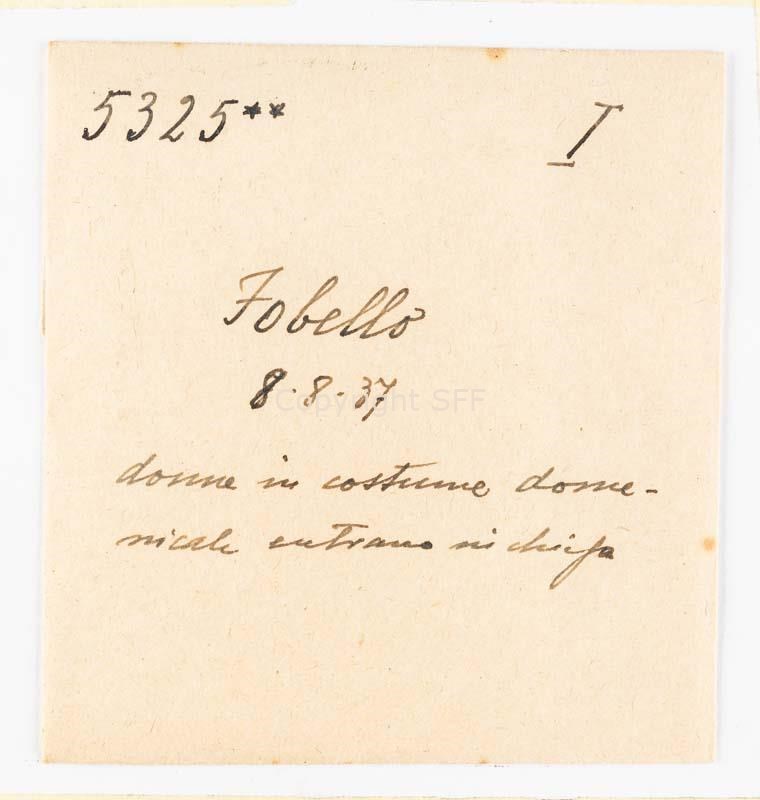 5325** I
Fobello
8.8.37
Copyright SFF
donne in costume dome-
nicale entrano in chiesa